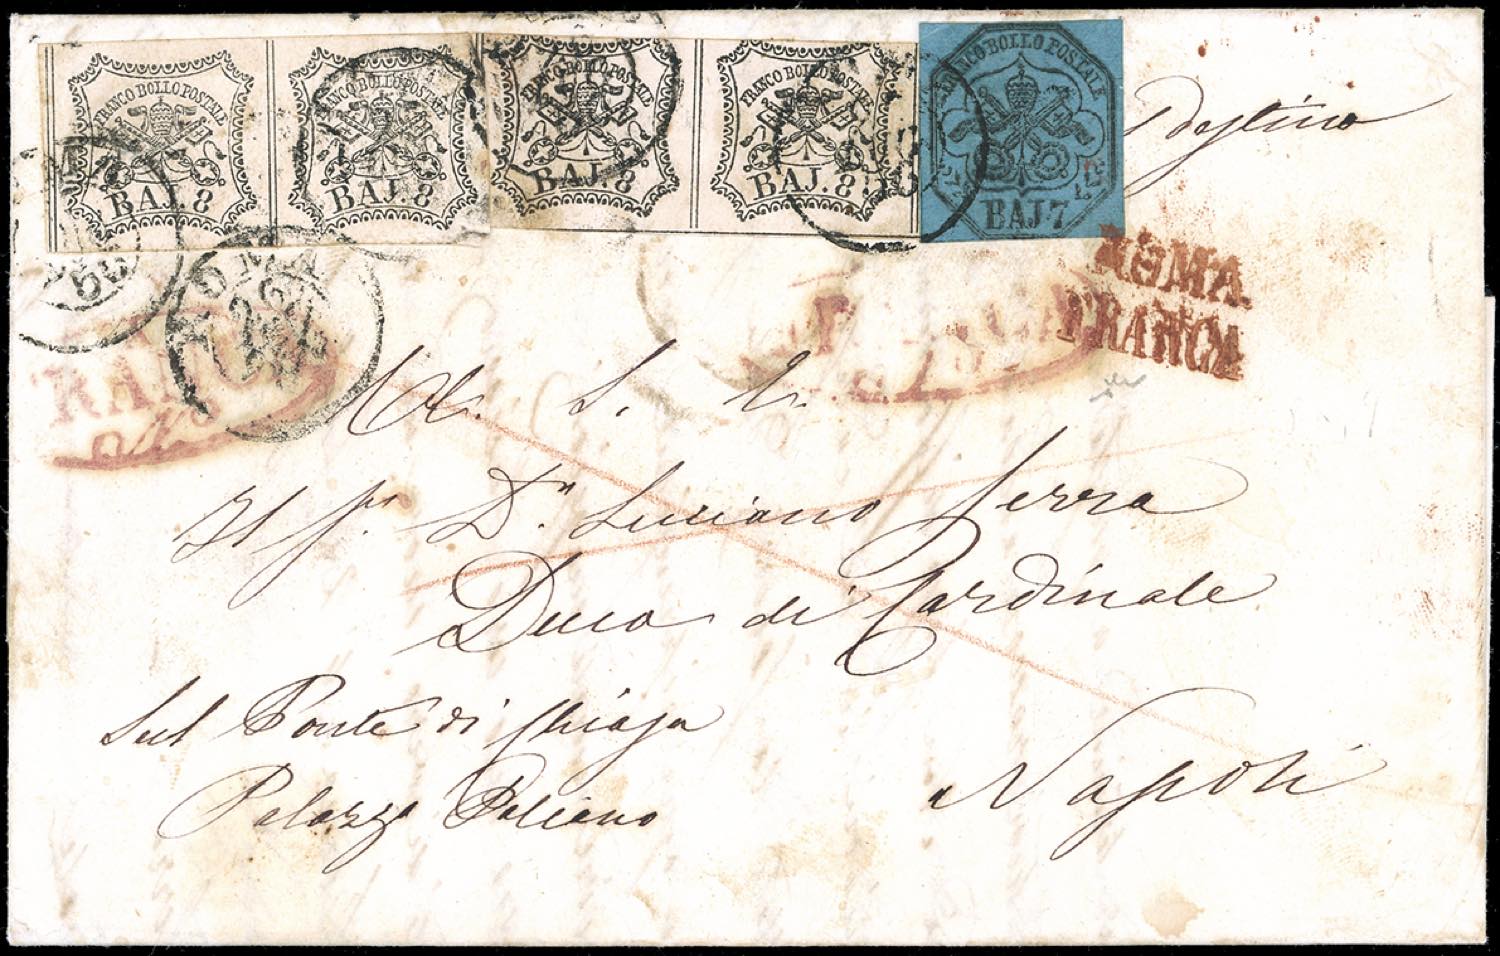 FRANCO BOLLO POSTALE
BAJ. 8
FRANCO BOLLO POSTALE
BAJ. 8
FRANCO BOLLO POSTALE
BAJ. 8
FRANCO BOLLO POSTALE
BAJ. 8
FRANCO BOLLO POSTALE
BAJ. 7
Destino
ROMA
FRANCA
A. S. E.
Il Sr. Dn. Luciano Serra
Duca di Cardinale
Sul Ponte di Chiaja
Palazzo Paliano
Napoli